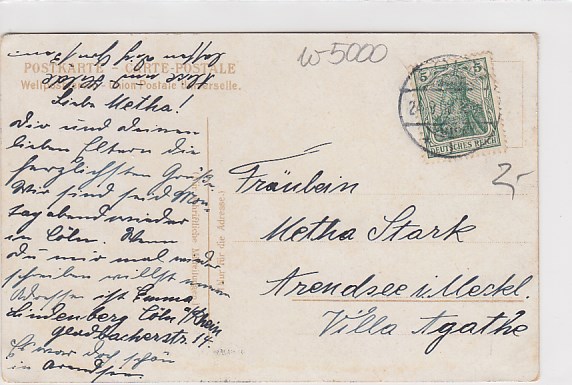 w 5000
POSTKARTE – CARTE-POSTALE
Weltpostverein – Union Postale Universelle.
Liebe Metha!
Dir und deinen
lieben Eltern die
herzlichsten Grüße.
Wir sind seid Mon-
tagabend wieder
in Cöln. Wenn
du mir mal
schreiben willst
Adresse ist Emma
Lindenberg Cöln a/Rhein
gladbacherstr. 14.
Es war doch schön
in Arendsee
Nur für die Adresse.
5 5
DEUTSCHES REICH
2,-
Fräulein
Metha Stark
Arendsee i. Meckl.
Villa Agathe